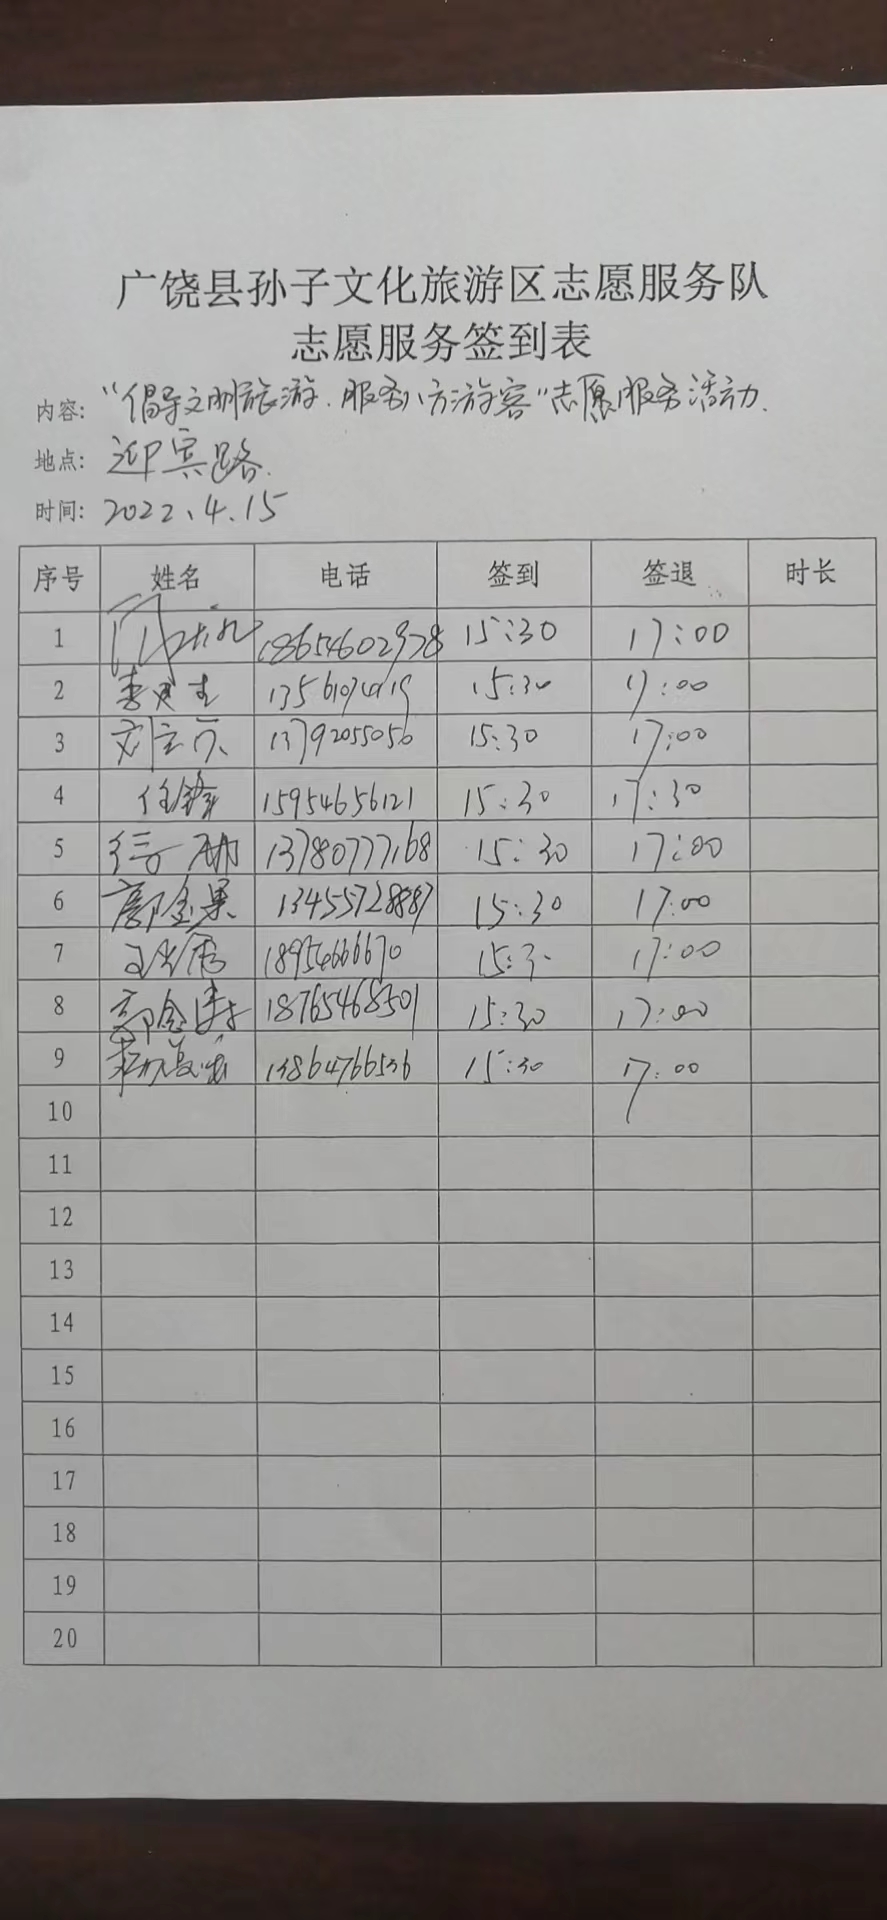 广饶县孙子文化旅游区志愿服务队
志愿服务签到表
内容: "倡导文明旅游.服务八方游客"志愿服务活动.
地点: 迎宾路.
时间: 2022、4.15
序号 姓名 电话 签到 签退 时长
1 18654602978 15:30 17:00
2 15:30 17:00
3 刘立 13792055056 15:30 17:00
4 任锋 15954656121 15:30 17:30
5 徐 13780777168 15:30 17:00
6 郭金果 13455728887 15:30 17:00
7 18954666670 15:3 17:00
8 郭念 18765468501 15:30 17:00
9 13864766536 15:30 17:00
10
11
12
13
14
15
16
17
18
19
20